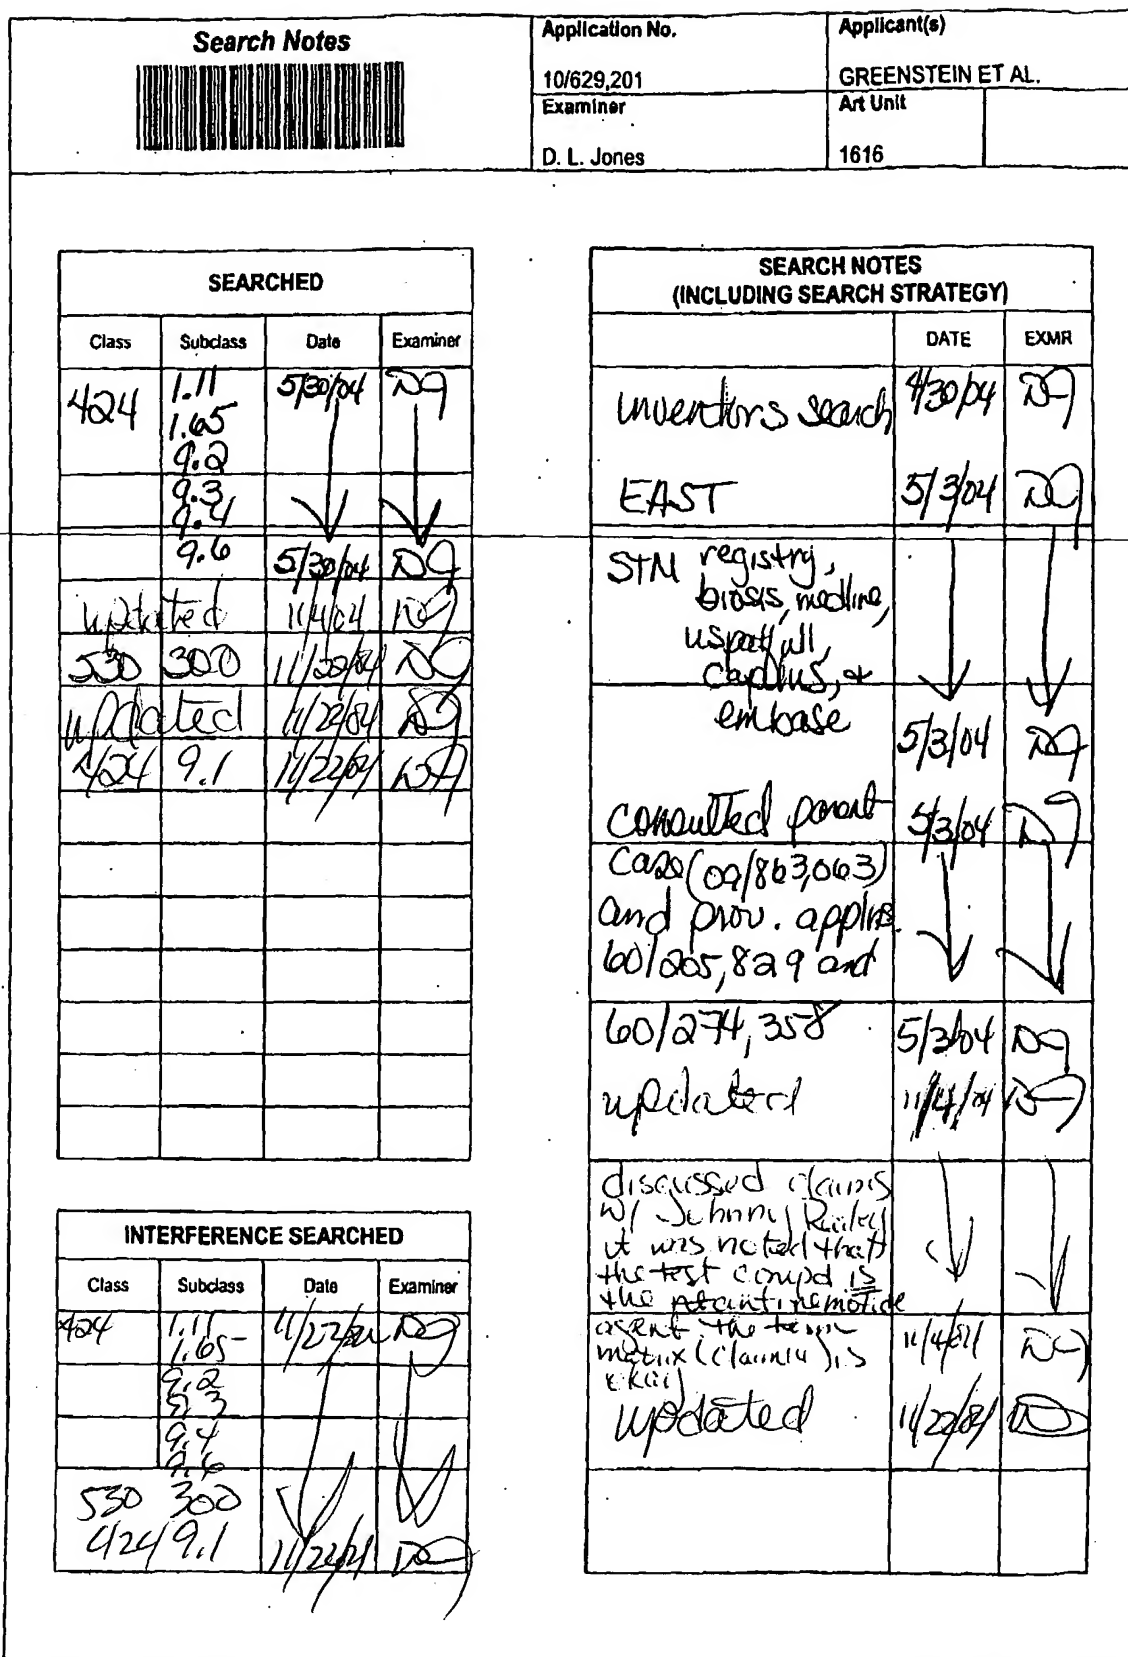 Search Notes
Application No.
10/629,201
Applicant(s)
GREENSTEIN ET AL.
Examiner
D. L. Jones
Art Unit
1616
SEARCHED
Class Subclass Date Examiner
424 1.11 5/30/04 DJ
1.65
9.2
9.3
9.4
9.6 5/30/04 DJ
updated 11/4/04 DJ
530 300 11/22/04 DJ
updated 11/22/04 DJ
424 9.1 11/22/04 DJ
INTERFERENCE SEARCHED
Class Subclass Date Examiner
424 1.11 11/22/04 DJ
1.65
9.2
9.3
9.4
9.6
530 300
424 9.1 11/22/04 DJ
SEARCH NOTES
(INCLUDING SEARCH STRATEGY)
DATE EXMR
inventors search 4/30/04 DJ
EAST 5/3/04 DJ
registry,
biosis, medline,
uspatfull,
caplus, &
embase 5/3/04 DJ
consulted parent 5/3/04 DJ
case (09/863,063)
and prov. applns.
60/205,829 and
60/274,358 5/3/04 DJ
updated 11/4/04 DJ
discussed claims
w/ Johnny
it was noted that
the test compd is
the
agent. the term
matrix is 11/4/04 DJ
updated 11/22/04 DJ